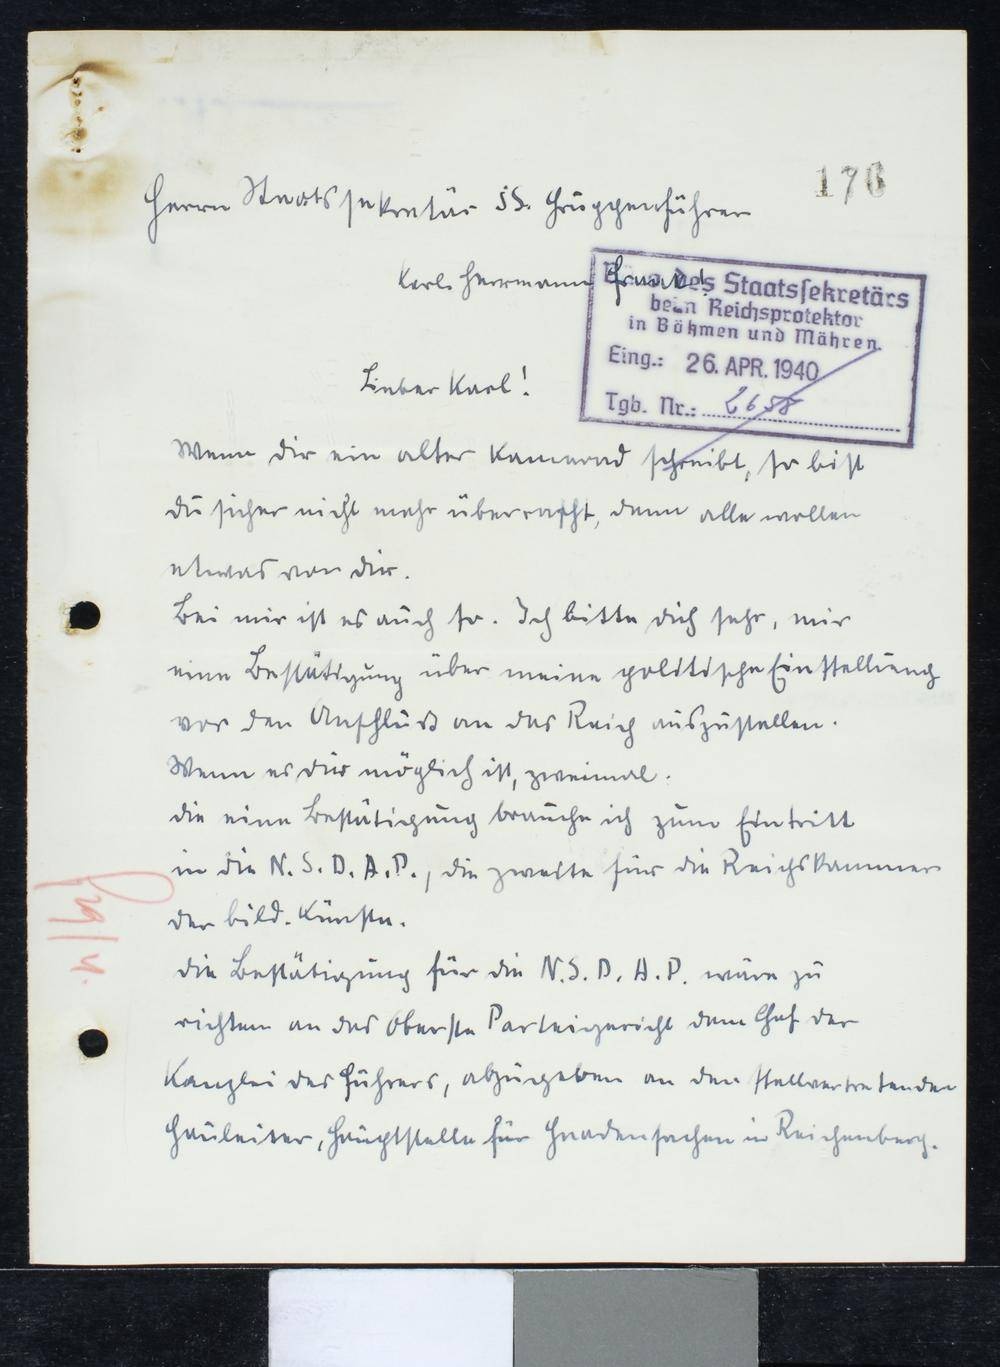 176
Herrn Staatssekretär SS. Gruppenführer
Karl Herrmann Frank!
Büro des Staatssekretärs
beim Reichsprotektor
in Böhmen und Mähren
Eing.: 26. APR. 1940
Tgb. Nr.: 2658
Lieber Karl!
Wenn dir ein alter Kamerad schreibt, so bist
du sicher nicht mehr überrascht, denn alle wollen
etwas von dir.
Bei mir ist es auch so. Ich bitte dich sehr, mir
eine Bestätigung über meine politische Einstellung
vor den Anschluß an das Reich auszustellen.
Wenn es dir möglich ist, zweimal.
die eine Bestätigung brauche ich zum Eintritt
in die N.S.D.A.P., die zweite für die Reichskammer
der bild. Künste.
die Bestätigung für die N.S.D.A.P. wäre zu
richten an das Oberste Parteigericht dem Chef der
Kanzlei des Führers, abzugeben an den stellvertretenden
Gauleiter, Hauptstelle für Gnadensachen in Reichenberg.